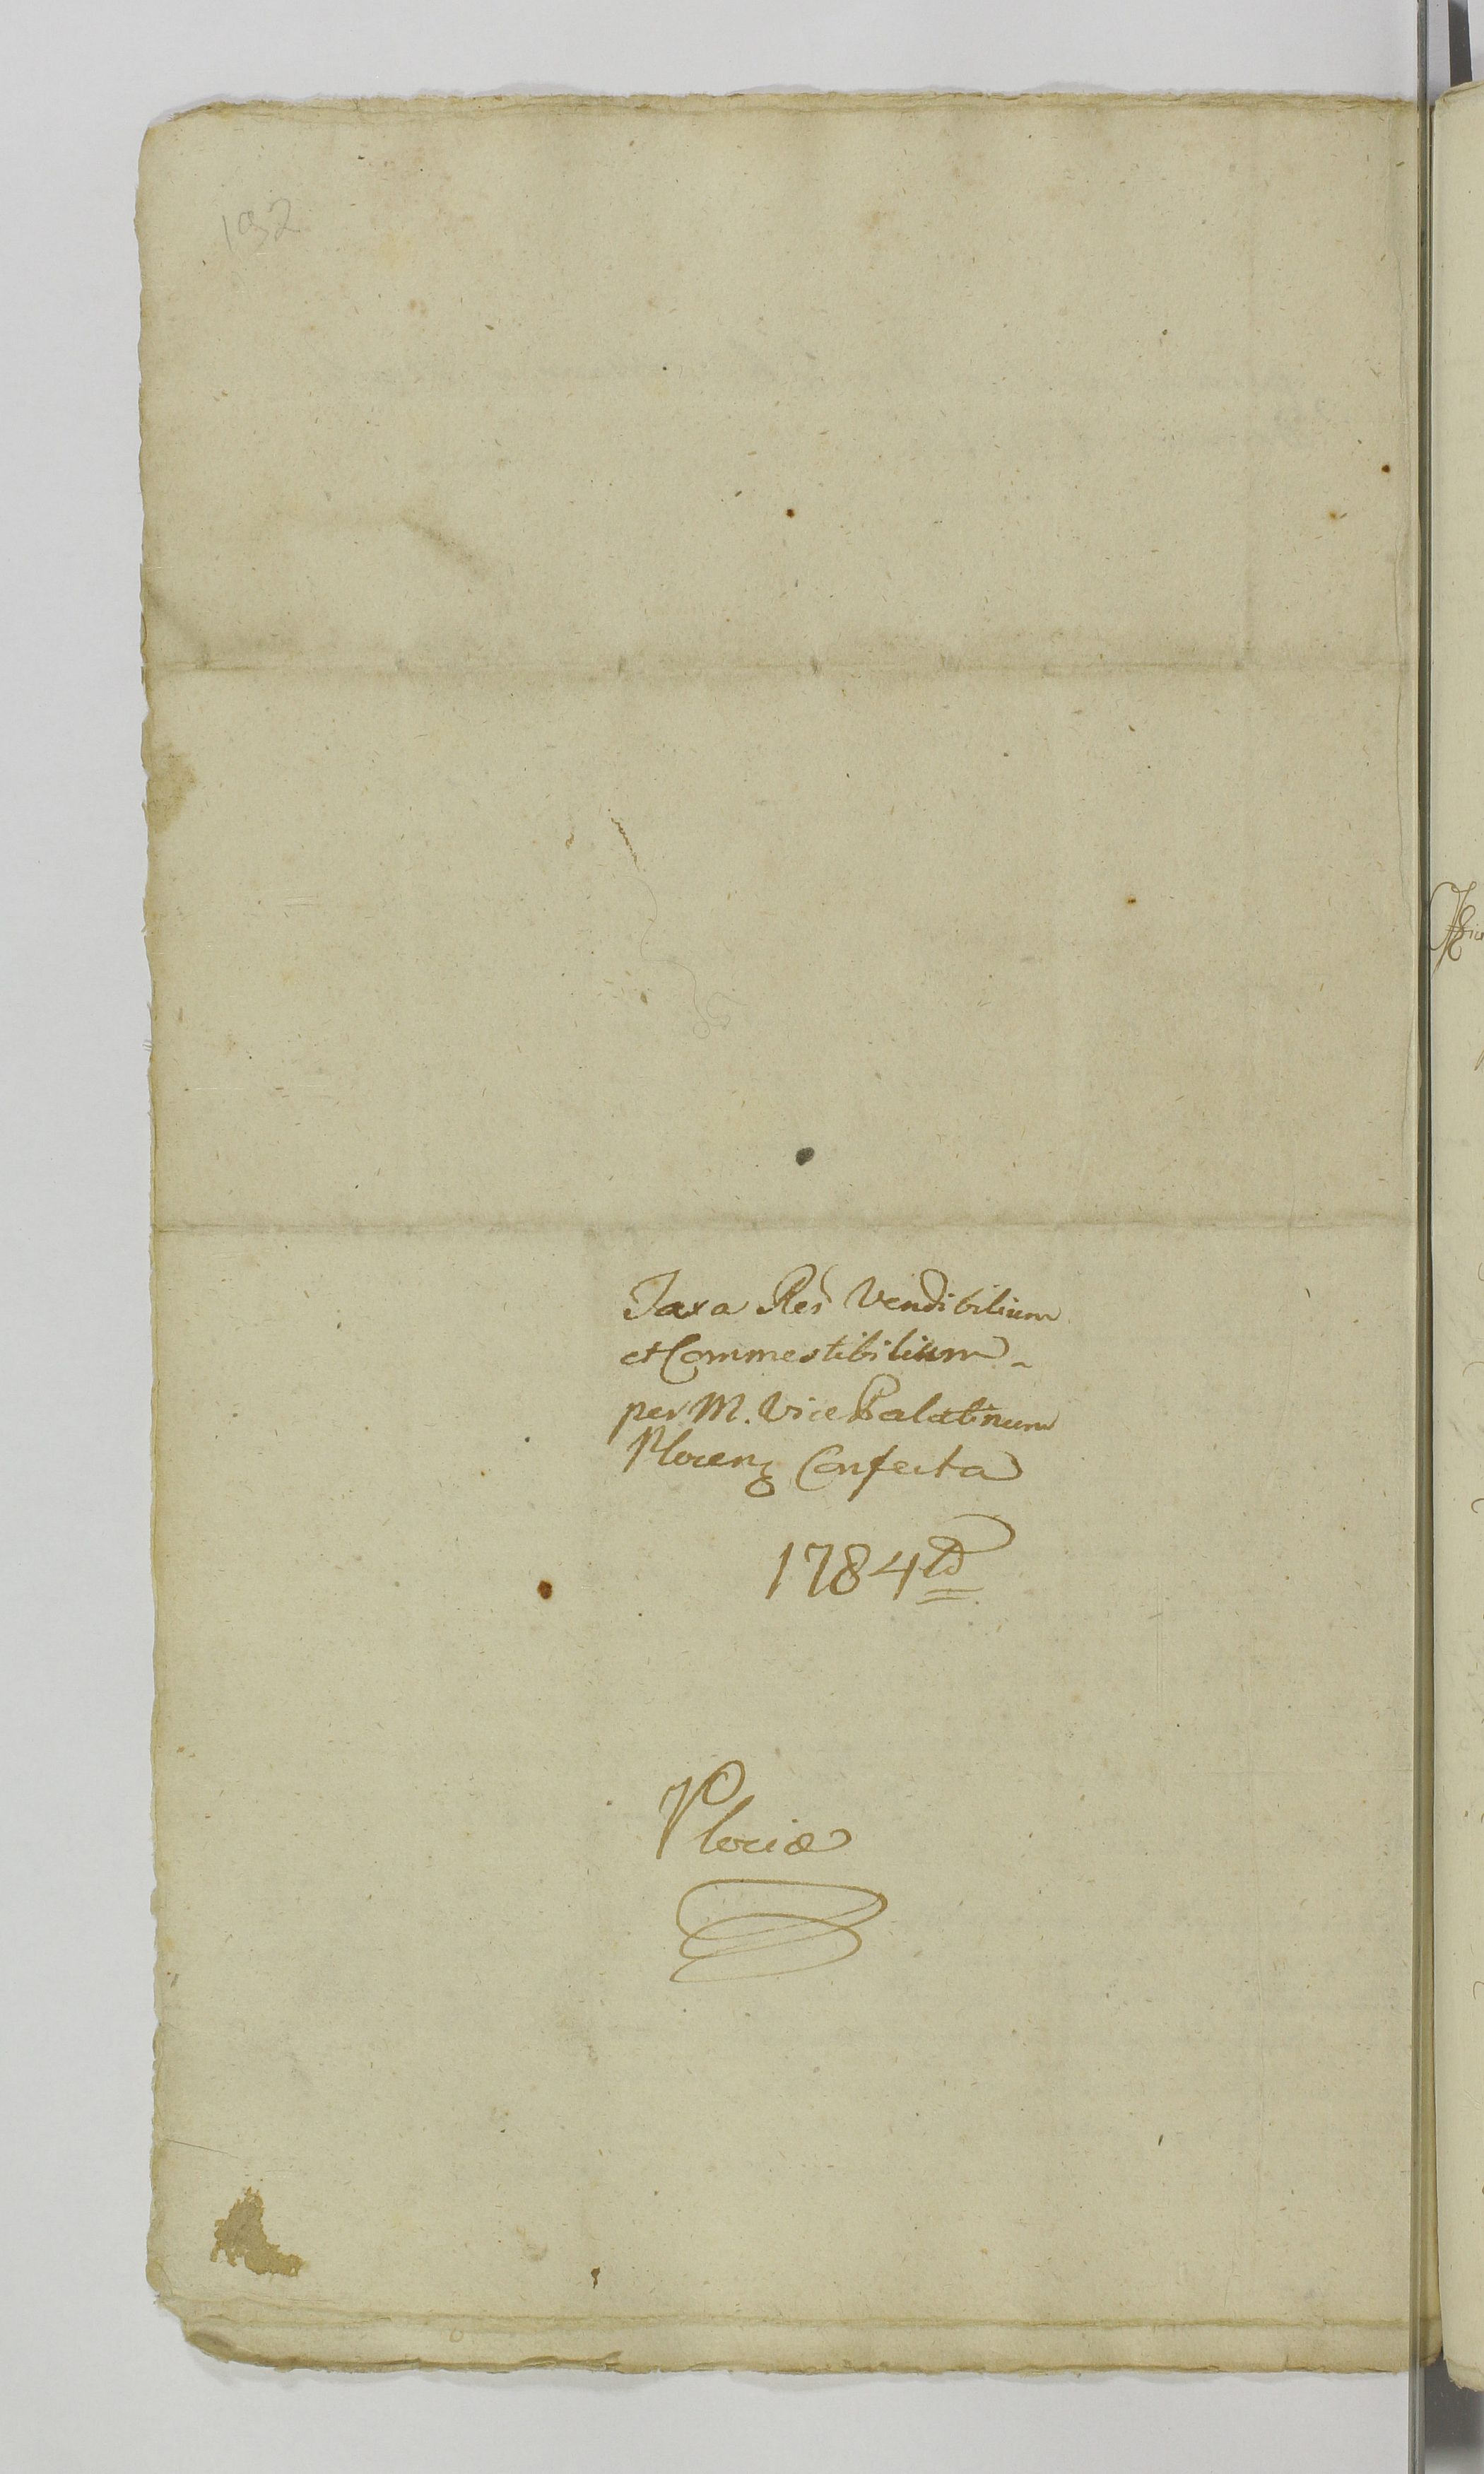 192
Taxa Res Vendibilium
et Commestibilium
per M. Vice Palatinum
Plocen Confecta
1784to
Plociæ